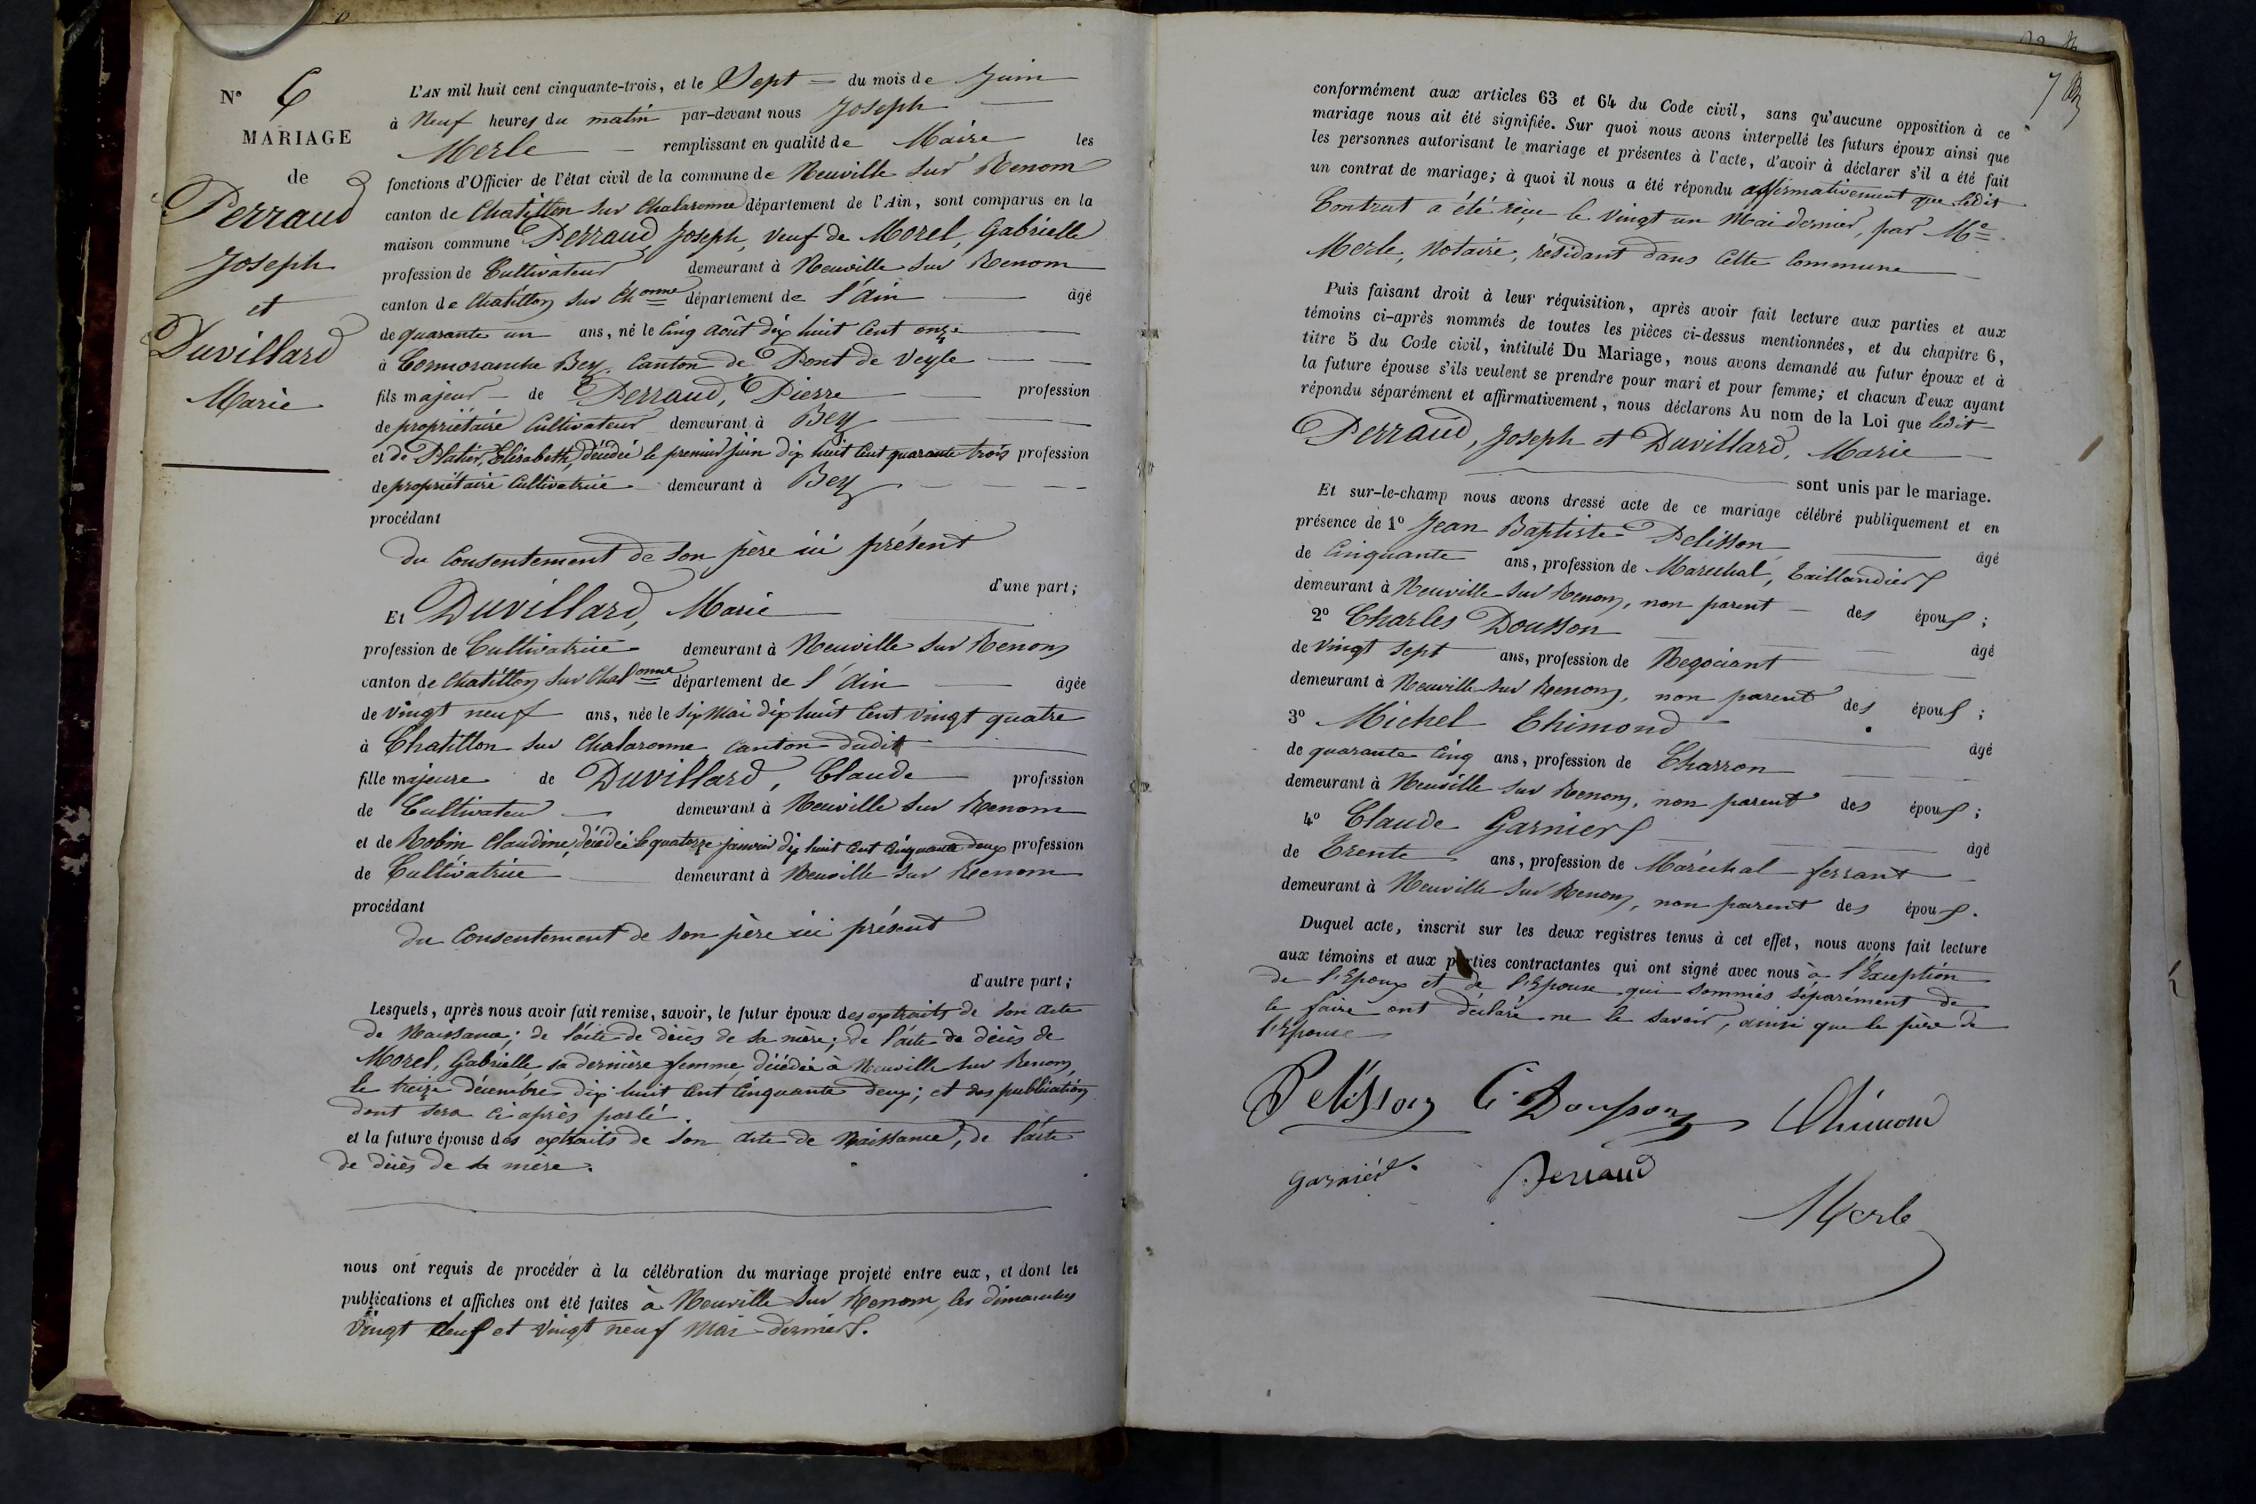 N° 6
MARIAGE
de
Perraud
Joseph
et
Duvillard
Marie
L'AN mil huit cent cinquante-trois, et le Sept du mois de Juin
à Neuf heures du matin par-devant nous Joseph
Merle remplissant en qualité de Maire les
fonctions d'Officier de l'état civil de la commune de Neuville sur Renom
canton de Chatillon sur Chalaronne département de l'Ain, sont comparus en la
maison commune Perraud, Joseph, veuf de Morel, Gabrielle
profession de Cultivateur demeurant à Neuville sur Renom
canton de Chatillon sur Chonne département de l'Ain âgé
de quarante un ans, né le Cinq Août dix huit Cent onze
à Cormoranche Bey, Canton de Pont de Veyle
fils majeur de Perraud, Pierre profession
de propriétaire Cultivateur demeurant à Bey
et de Platier, Elisabeth, décédée le premier juin dix huit Cent quarante trois profession
de propriétaire Cultivatrice demeurant à Bey
procédant
du Consentement de son père ici présent
d'une part;
Et Duvillard, Marie
profession de Cultivatrice demeurant à Neuville sur Renom
canton de Chatillon sur Chalonne département de l'Ain âgée
de vingt neuf ans, née le six Mai dix huit Cent vingt quatre
à Chatillon sur Chalaronne Canton dudit
fille majeure de Duvillard, Claude profession
de Cultivateur demeurant à Neuville sur Renom
et de Robin Claudine, décédée le quatorze janvier dix huit Cent Cinquante deux profession
de Cultivatrice demeurant à Neuville sur Renom
procédant
du Consentement de son père ici présent
d'autre part;
Lesquels, après nous avoir fait remise, savoir, le futur époux des extraits de son Acte
de Naissance; de l'acte de décès de sa mère; de l'acte de décès de
Morel, Gabrielle sa dernière femme, décédée à Neuville sur Renom,
le treize décembre dix huit Cent Cinquante deux; et des publication
dont sera Ci après parlé.
et la future épouse des extraits de Son Acte de Naissance, de l'acte
de décès de sa mère.
nous ont requis de procéder à la célébration du mariage projeté entre eux, et dont les
publications et affiches ont été faites à Neuville sur Renom, les dimanches
vingt deux et vingt neuf Mai derniers.
conformément aux articles 63 et 64 du Code civil, sans qu'aucune opposition à ce
mariage nous ait été signifiée. Sur quoi nous avons interpellé les futurs époux ainsi que
les personnes autorisant le mariage et présentes à l'acte, d'avoir à déclarer s'il a été fait
un contrat de mariage; à quoi il nous a été répondu affirmativement que ledit
Contrat a été reçu le vingt un Mai dernier, par Me
Merle, Notaire, résidant dans Cette Commune
Puis faisant droit à leur réquisition, après avoir fait lecture aux parties et aux
témoins ci-après nommés de toutes les pièces ci-dessus mentionnées, et du chapitre 6,
titre 5 du Code civil, intitulé Du Mariage, nous avons demandé au futur époux et à
la future épouse s'ils veulent se prendre pour mari et pour femme; et chacun d'eux ayant
répondu séparément et affirmativement, nous déclarons Au nom de la Loi que ledit
Perraud, Joseph et Duvillard, Marie
sont unis par le mariage.
Et sur-le-champ nous avons dressé acte de ce mariage célébré publiquement et en
présence de 1° Jean Baptiste Pelisson âgé
de Cinquante ans, profession de Maréchal, Taillandier
demeurant à Neuville sur Renom, non parent des époux;
2° Charles Dousson âgé
de vingt sept ans, profession de Négociant
demeurant à Neuville sur Renom, non parent des époux;
3° Michel Thimond âgé
de quarante cinq ans, profession de Charron
demeurant à Neuville sur Renom, non parent des époux;
4° Claude Garnier âgé
de Trente ans, profession de Maréchal ferrant
demeurant à Neuville sur Renom, non parent des époux.
Duquel acte, inscrit sur les deux registres tenus à cet effet, nous avons fait lecture
aux témoins et aux parties contractantes qui ont signé avec nous à l'Exception
de l'Epoux et de l'Epouse qui sommés séparément de
le faire ont déclaré ne le savoir, ainsi que le père de
l'Epouse
Pelisson C. Dousson Thimond
garnier Perraud
Merle